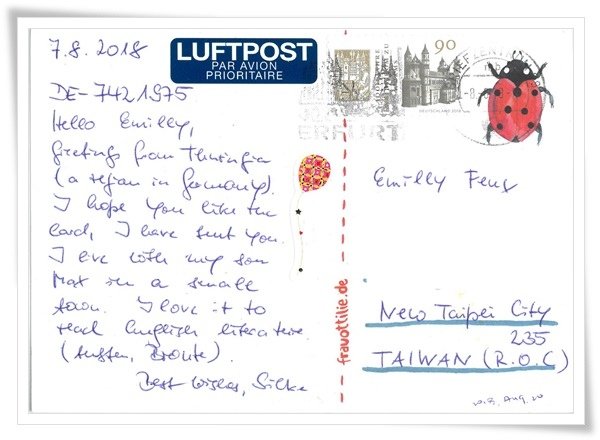 7.8.2018
LUFTPOST
PAR AVION
PRIORITAIRE
90
DEUTSCHLAND
ERFURT
DE-7421975
Hello Emilly,
Gretings from Thuringia
(a region in Germany).
I hope you like the
card, I have sent you.
I live with my son
Max in a small
town. I love it to
read English literature.
(Austen, Bronte).
Best wishes, Silke
frauottilie.de
Emilly Feng
New Taipei City
235
TAIWAN (R.O.C)